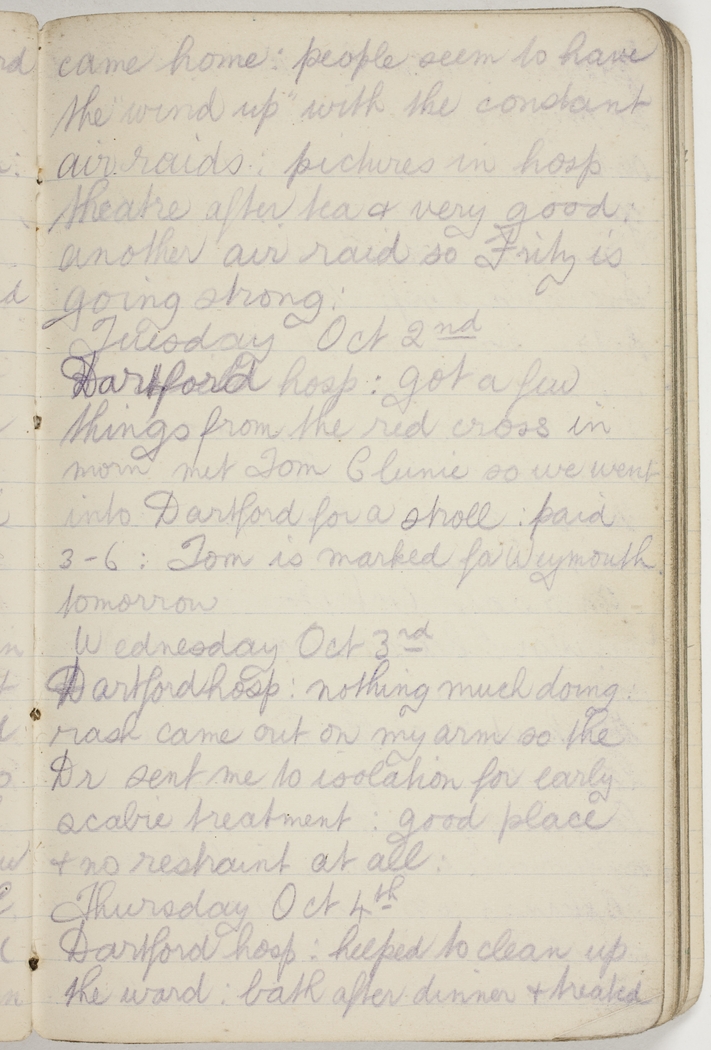 came home: people seem to have
the "wind up" with the constant
air raids: pictures in hosp
theatre after tea & very good:
another air raid so Fritz is
going strong:
Tuesday Oct 2nd
Dartford hosp: got a few
things from the red cross in
morn met Tom Clunie so we went
into Dartford for a stroll: paid
3-6: Tom is marked for Weymouth
tomorrow
Wednesday Oct 3rd
Dartford hosp: nothing much doing.
rash came out on my arm so the
Dr sent me to isolation for early
scabie treatment: good place
& no restraint at all:
Thursday Oct 4th
Dartford hosp: helped to clean up
the ward: bath after dinner & treated